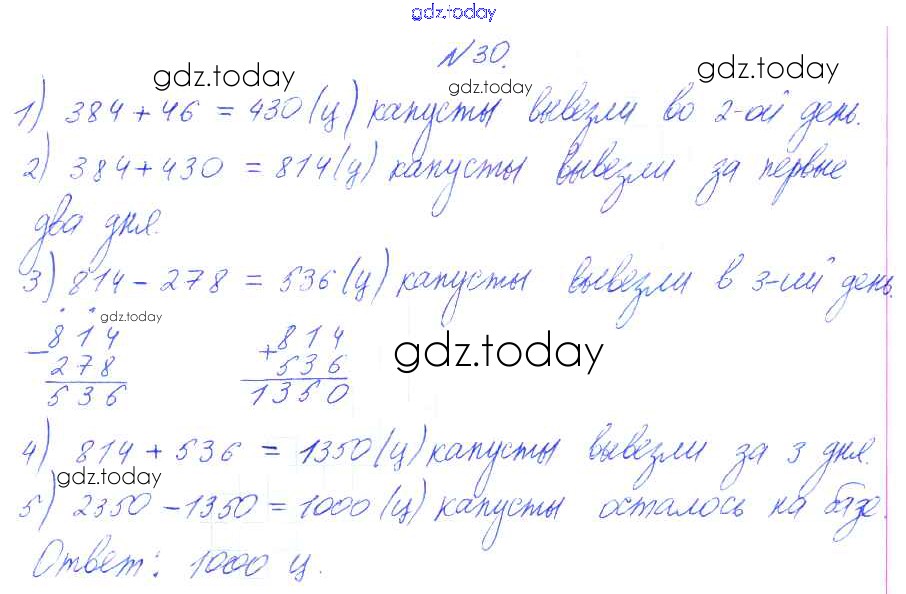 gdz.today
№30.
gdz.today gdz.today gdz.today
1) 384 + 46 = 430 (ц) капусты вывезли во 2-ой день.
2) 384 + 430 = 814 (ц) капусты вывезли за первые
два дня.
3) 814 - 278 = 536 (ц) капусты вывезли в 3-ий день.
gdz.today
- 814
278
536
+ 814
536
1350
gdz.today
4) 814 + 536 = 1350 (ц) капусты вывезли за 3 дня.
gdz.today
5) 2350 - 1350 = 1000 (ц) капусты осталось на базе.
Ответ: 1000 ц.